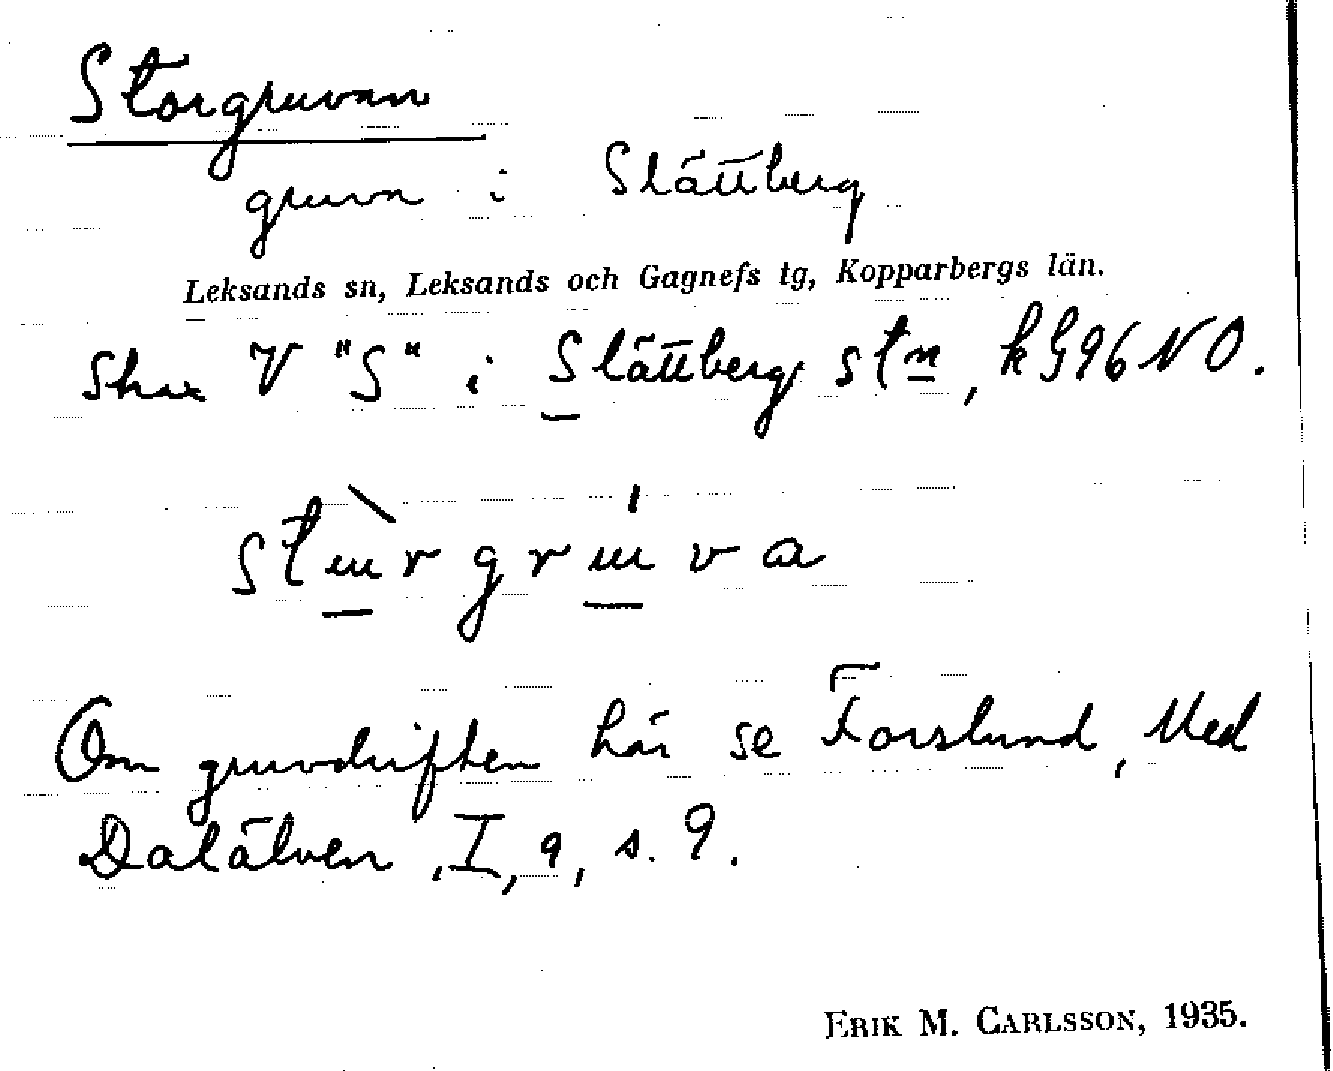 Storgruvan
gruva i Slättberg
Leksands sn, Leksands och Gagnefs tg, Kopparbergs län.
V "S" i Slättberg stn, kG96NO.
Om gruvdriften här se Forslund, Med
Dalälven, I, 9, s. 9.
ERIK M. CARLSSON, 1935.